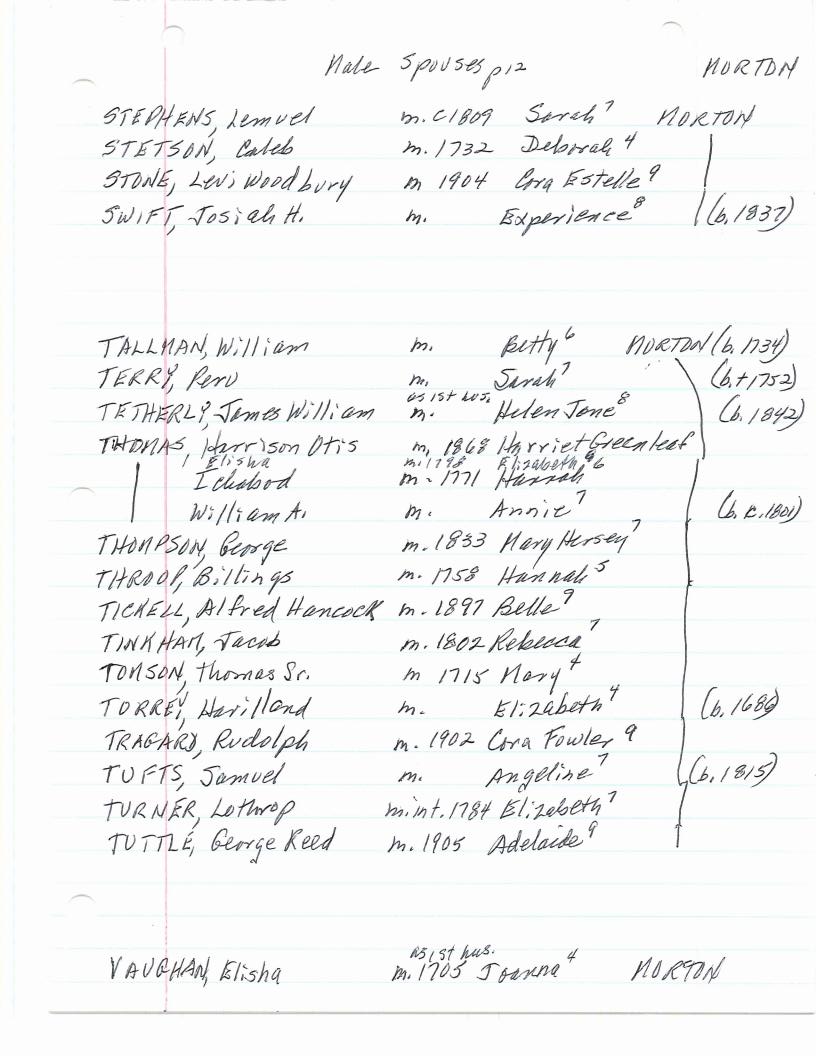 Male Spouses p12 MORTON
STEPHENS, Lemuel m. c1809 Sarah⁷ MORTON
STETSON, Caleb m. 1732 Deborah⁴
STONE, Levi Woodbury m 1904 Cora Estelle⁹
SWIFT, Josiah H. m. Experience⁸ (b. 1837)
TALLMAN, William m. Betty⁶ MORTON (b. 1734)
TERRY, Peru m. Sarah⁷ (b. + 1752)
as 1st hus.
TETHERLY, James William m. Helen Jane⁸ (b. 1842)
THOMAS, Harrison Otis m, 1868 Harriet Greenleaf
Elisha m. 1798 Elizabeth
Ichabod m - 1771 Hannah⁶
William A. m. Annie⁷ (b. c. 1801)
THOMPSON, George m. 1833 Mary Hersey⁷
THROOP, Billings m. 1758 Hannah⁵
TICKELL, Alfred Hancock m. 1897 Belle⁹
TINKHAM, Jacob m. 1802 Rebecca⁷
TOMSON, Thomas Sr. m 1715 Mary⁴
TORREY, Havilland m. Elizabeth⁴ (b. 1686)
TRAGARD, Rudolph m. 1902 Cora Fowler⁹
TUFTS, Samuel m. Angeline⁷ (b. 1815)
TURNER, Lothrop m int. 1784 Elizabeth⁷
TUTTLE, George Reed m. 1905 Adelaide⁹
as 1st hus.
VAUGHAN, Elisha m. 1705 Joanna⁴ MORTON